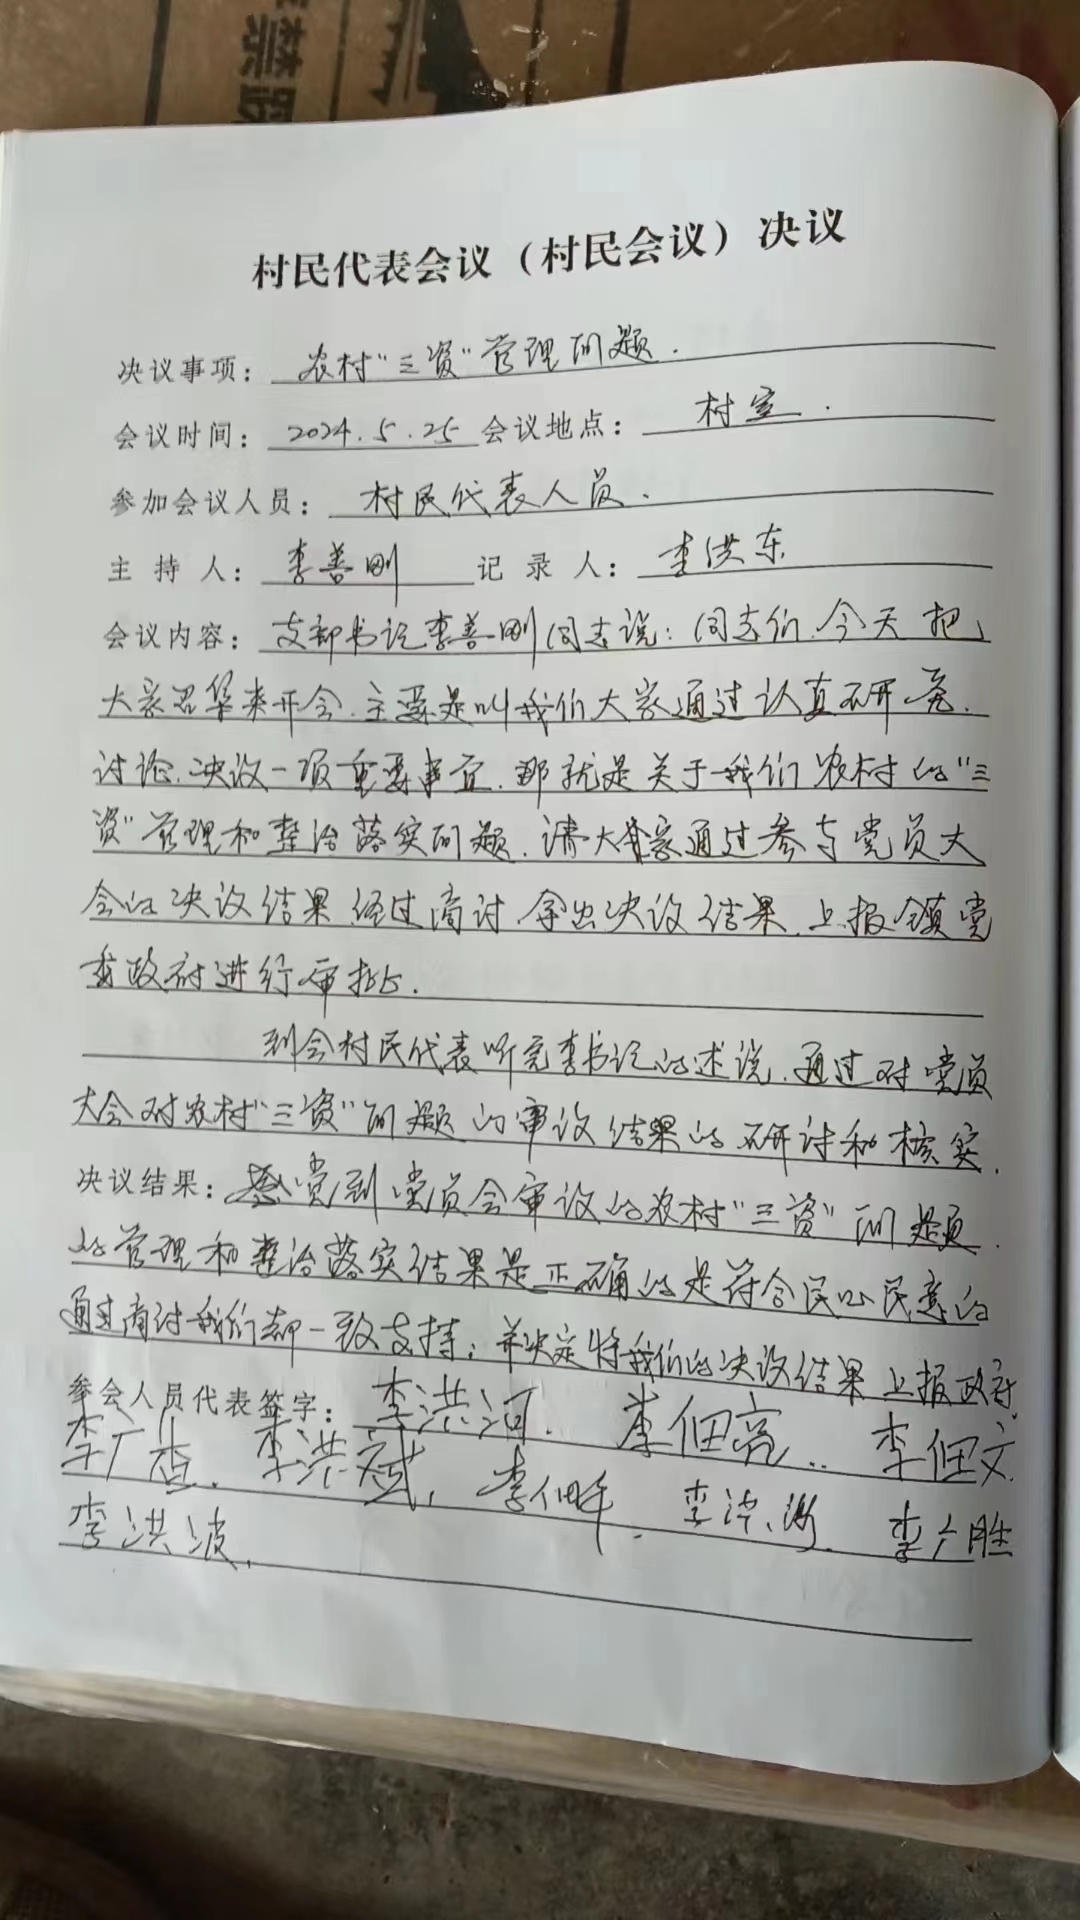 村民代表会议（村民会议）决议
决议事项：农村“三资”管理问题.
会议时间：2024.5.25 会议地点：村室.
参加会议人员：村民代表人员.
主持人：李善刚 记录人：李洪东
会议内容：支部书记李善刚同志说：同志们.今天把
大家召集来开会.主要是叫我们大家通过认真研究.
讨论.决议一项重要事宜.那就是关于我们农村的“三
资”管理和整治落实问题.请大家通过参与党员大
会的决议结果.经过商讨.拿出决议结果.上报镇党
委政府进行审批.
到会村民代表听完李书记的述说.通过对党员
大会对农村“三资”问题的审议结果的研讨和核实.
决议结果：感觉到党员会审议的农村“三资”问题.
的管理和整治落实结果是正确的是符合民心民意的
通过商讨我们都一致支持；并决定将我们的决议结果上报政府.
参会人员代表签字：李洪河. 李佃亮.. 李佃文.
李广 李洪斌, 李佃 李 李广胜
李洪波.